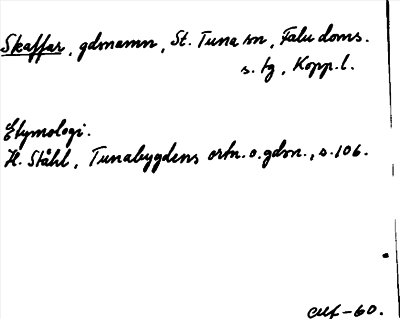 Skaffar, gdsnamn, St. Tuna sn, Falu doms.
s. tg, Kopp. l.
Etymologi.
H. Ståhl, Tunabygdens ortn. o. gdsn., s. 106.
-60.